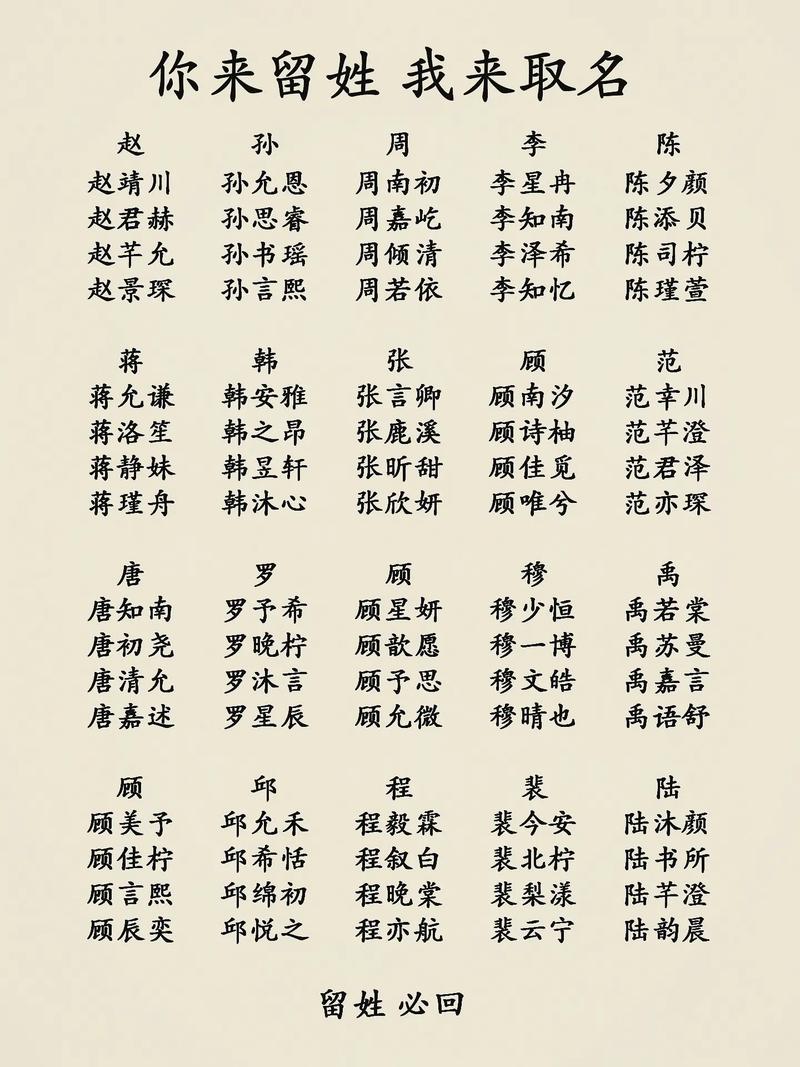 你来留姓 我来取名
赵 孙 周 李 陈
赵靖川 孙允恩 周南初 李星冉 陈夕颜
赵君赫 孙思睿 周嘉屹 李知南 陈添贝
赵芊允 孙书瑶 周倾清 李泽希 陈司柠
赵景琛 孙言熙 周若依 李知忆 陈瑾萱
蒋 韩 张 顾 范
蒋允谦 韩安雅 张言卿 顾南汐 范幸川
蒋洛笙 韩之昂 张鹿溪 顾诗柚 范芊澄
蒋静姝 韩昱轩 张昕甜 顾佳觅 范君泽
蒋瑾舟 韩沐心 张欣妍 顾唯兮 范亦琛
唐 罗 顾 穆 禹
唐知南 罗予希 顾星妍 穆少恒 禹若棠
唐初尧 罗晚柠 顾歆愿 穆一博 禹苏曼
唐清允 罗沐言 顾予思 穆文皓 禹嘉言
唐嘉述 罗星辰 顾允微 穆晴也 禹语舒
顾 邱 程 裴 陆
顾美予 邱允禾 程毅霖 裴今安 陆沐颜
顾佳柠 邱希恬 程叙白 裴北柠 陆书所
顾言熙 邱绵初 程晚棠 裴梨漾 陆芊澄
顾辰奕 邱悦之 程亦航 裴云宁 陆韵晨
留姓 必回